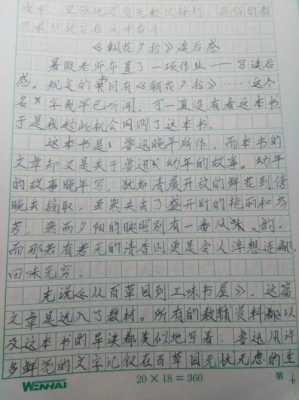 《朝花夕拾》读后感
暑假老师布置了一项作业——写读后
感。规定的书目有《朝花夕拾》……这个
名字我早已听闻，可一直没有看这本书
于是我趁此机会阅阅了这本书。
这本书是鲁迅晚年所作，而本书的
文章却又是关于鲁迅幼年的故事。幼年
的故事晚年写，就即清晨开放的鲜花到傍
晚去摘取，虽然失去了盛开时的艳丽和芬
芳，但夕阳的映照别有一番风味的，
而那若有若无的清香则更是令人浮想连翩
回味无穷。
先说《从百草园到三味书屋》，这篇
文章是选入了教材。所有的教辅资料都以
及这本书的导读都类似地写着：鲁迅用许
多鲜亮的文字记叙在百草园无忧无虑的生
WENHAI
20 × 18 = 360
第